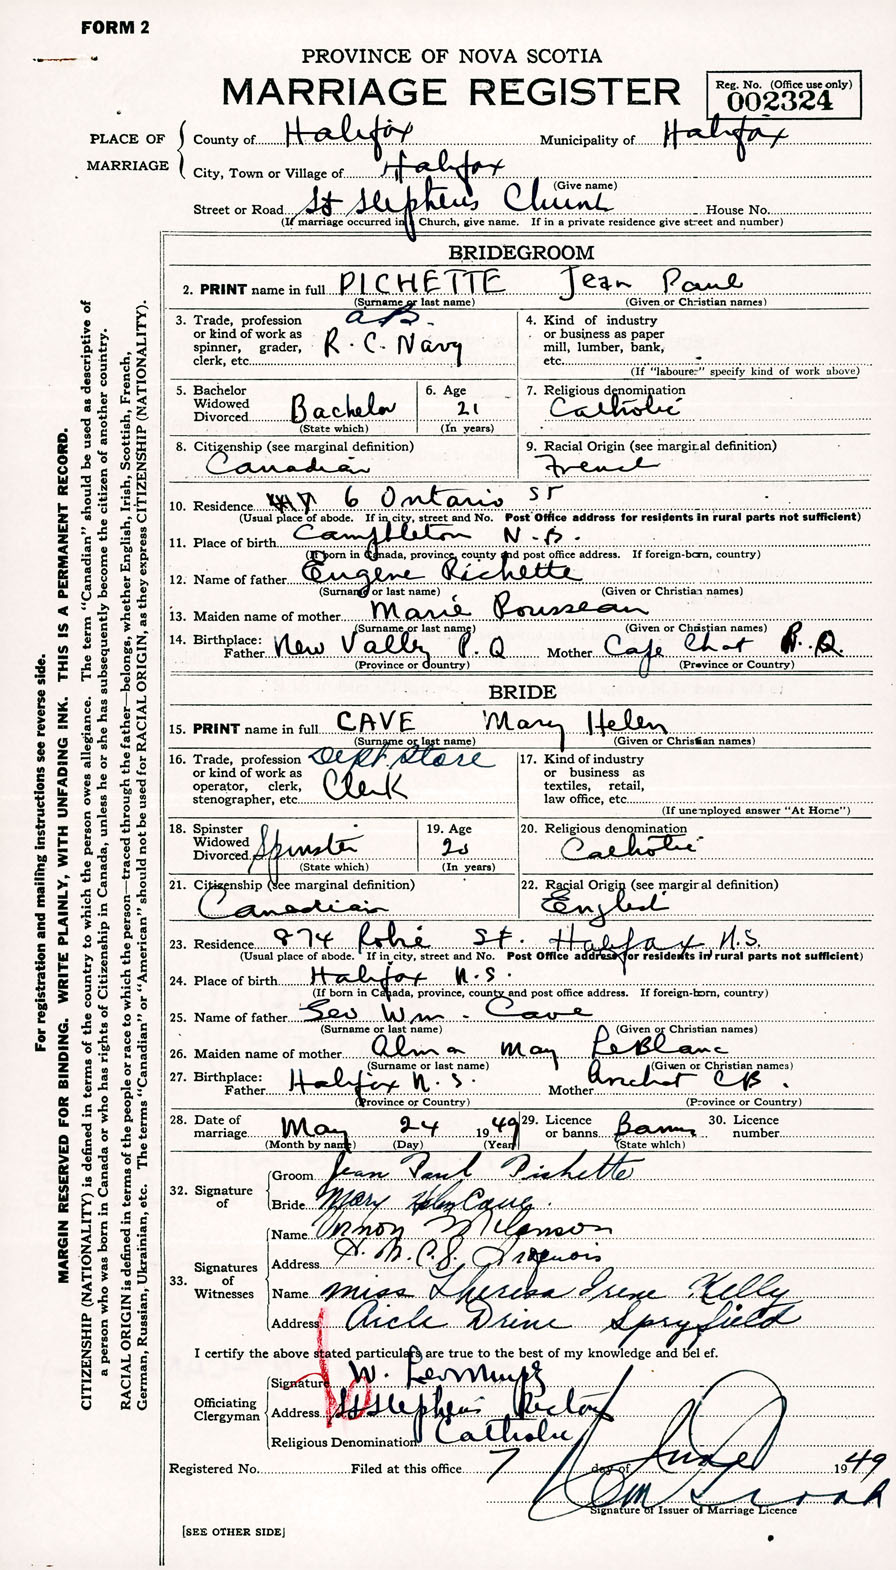 FORM 2
PROVINCE OF NOVA SCOTIA
MARRIAGE REGISTER
Reg. No. (Office use only)
002324
PLACE OF MARRIAGE
County of Halifax Municipality of Halifax
City, Town or Village of Halifax
(Give name)
Street or Road St Stephens Church House No.
(If marriage occurred in a Church, give name. If in a private residence give street and number)
BRIDEGROOM
2. PRINT name in full PICHETTE Jean Paul
(Surname or last name) (Given or Christian names)
3. Trade, profession or kind of work as spinner, grader, clerk, etc. AB. R.C. Navy
4. Kind of industry or business as paper mill, lumber, bank, etc.
(If "labourer" specify kind of work above)
5. Bachelor Widowed Divorced Bachelor
(State which)
6. Age 21
(In years)
7. Religious denomination Catholic
8. Citizenship (see marginal definition) Canadian
9. Racial Origin (see marginal definition) French
10. Residence 6 Ontario St
(Usual place of abode. If in city, street and No. Post Office address for residents in rural parts not sufficient)
11. Place of birth Campbleton N.B.
(If born in Canada, province, county and post office address. If foreign-born, country)
12. Name of father Eugene Pichette
(Surname or last name) (Given or Christian names)
13. Maiden name of mother Marie Rousseau
(Surname or last name) (Given or Christian names)
14. Birthplace: Father New Valley P.Q Mother Cape Chat P.Q.
(Province or Country) (Province or Country)
BRIDE
15. PRINT name in full CAVE Mary Helen
(Surname or last name) (Given or Christian names)
16. Trade, profession or kind of work as operator, clerk, stenographer, etc. Dept. Store Clerk
17. Kind of industry or business as textiles, retail, law office, etc.
(If unemployed answer "At Home")
18. Spinster Widowed Divorced Spinster
(State which)
19. Age 20
(In years)
20. Religious denomination Catholic
21. Citizenship (see marginal definition) Canadian
22. Racial Origin (see marginal definition) English
23. Residence 874 Robie St. Halifax, N.S.
(Usual place of abode. If in city, street and No. Post Office address for residents in rural parts not sufficient)
24. Place of birth Halifax N.S.
(If born in Canada, province, county and post office address. If foreign-born, country)
25. Name of father Geo Wm. Cave
(Surname or last name) (Given or Christian names)
26. Maiden name of mother Alma May LeBlanc
(Surname or last name) (Given or Christian names)
27. Birthplace: Father Halifax N.S. Mother Arichat CB.
(Province or Country) (Province or Country)
28. Date of marriage May 24 1949
(Month by name) (Day) (Year)
29. Licence or banns Banns
(State which)
30. Licence number
32. Signature of
Groom Jean Paul Pichette
Bride Mary Helen Cave.
33. Signatures of Witnesses
Name Vernon Melanson
Address H.M.C.S. Iroquois
Name Miss Theresa Irene Kelly
Address Drive Spryfield
I certify the above stated particulars are true to the best of my knowledge and belief.
Officiating Clergyman
Signature W.
Address St Stephens Rectory
Religious Denomination Catholic
Registered No. Filed at this office 7 day of June 1949
Signature of Issuer of Marriage Licence
[SEE OTHER SIDE]
For registration and mailing instructions see reverse side.
MARGIN RESERVED FOR BINDING. WRITE PLAINLY, WITH UNFADING INK. THIS IS A PERMANENT RECORD.
CITIZENSHIP (NATIONALITY) is defined in terms of the country to which the person owes allegiance. The term "Canadian" should be used as descriptive of
a person who was born in Canada or who has rights of Citizenship in Canada, unless he or she has subsequently become the citizen of another country.
RACIAL ORIGIN is defined in terms of the people or race to which the person—traced through the father—belongs, whether English, Irish, Scottish, French,
German, Russian, Ukrainian, etc. The terms "Canadian" or "American" should not be used for RACIAL ORIGIN, as they express CITIZENSHIP (NATIONALITY).